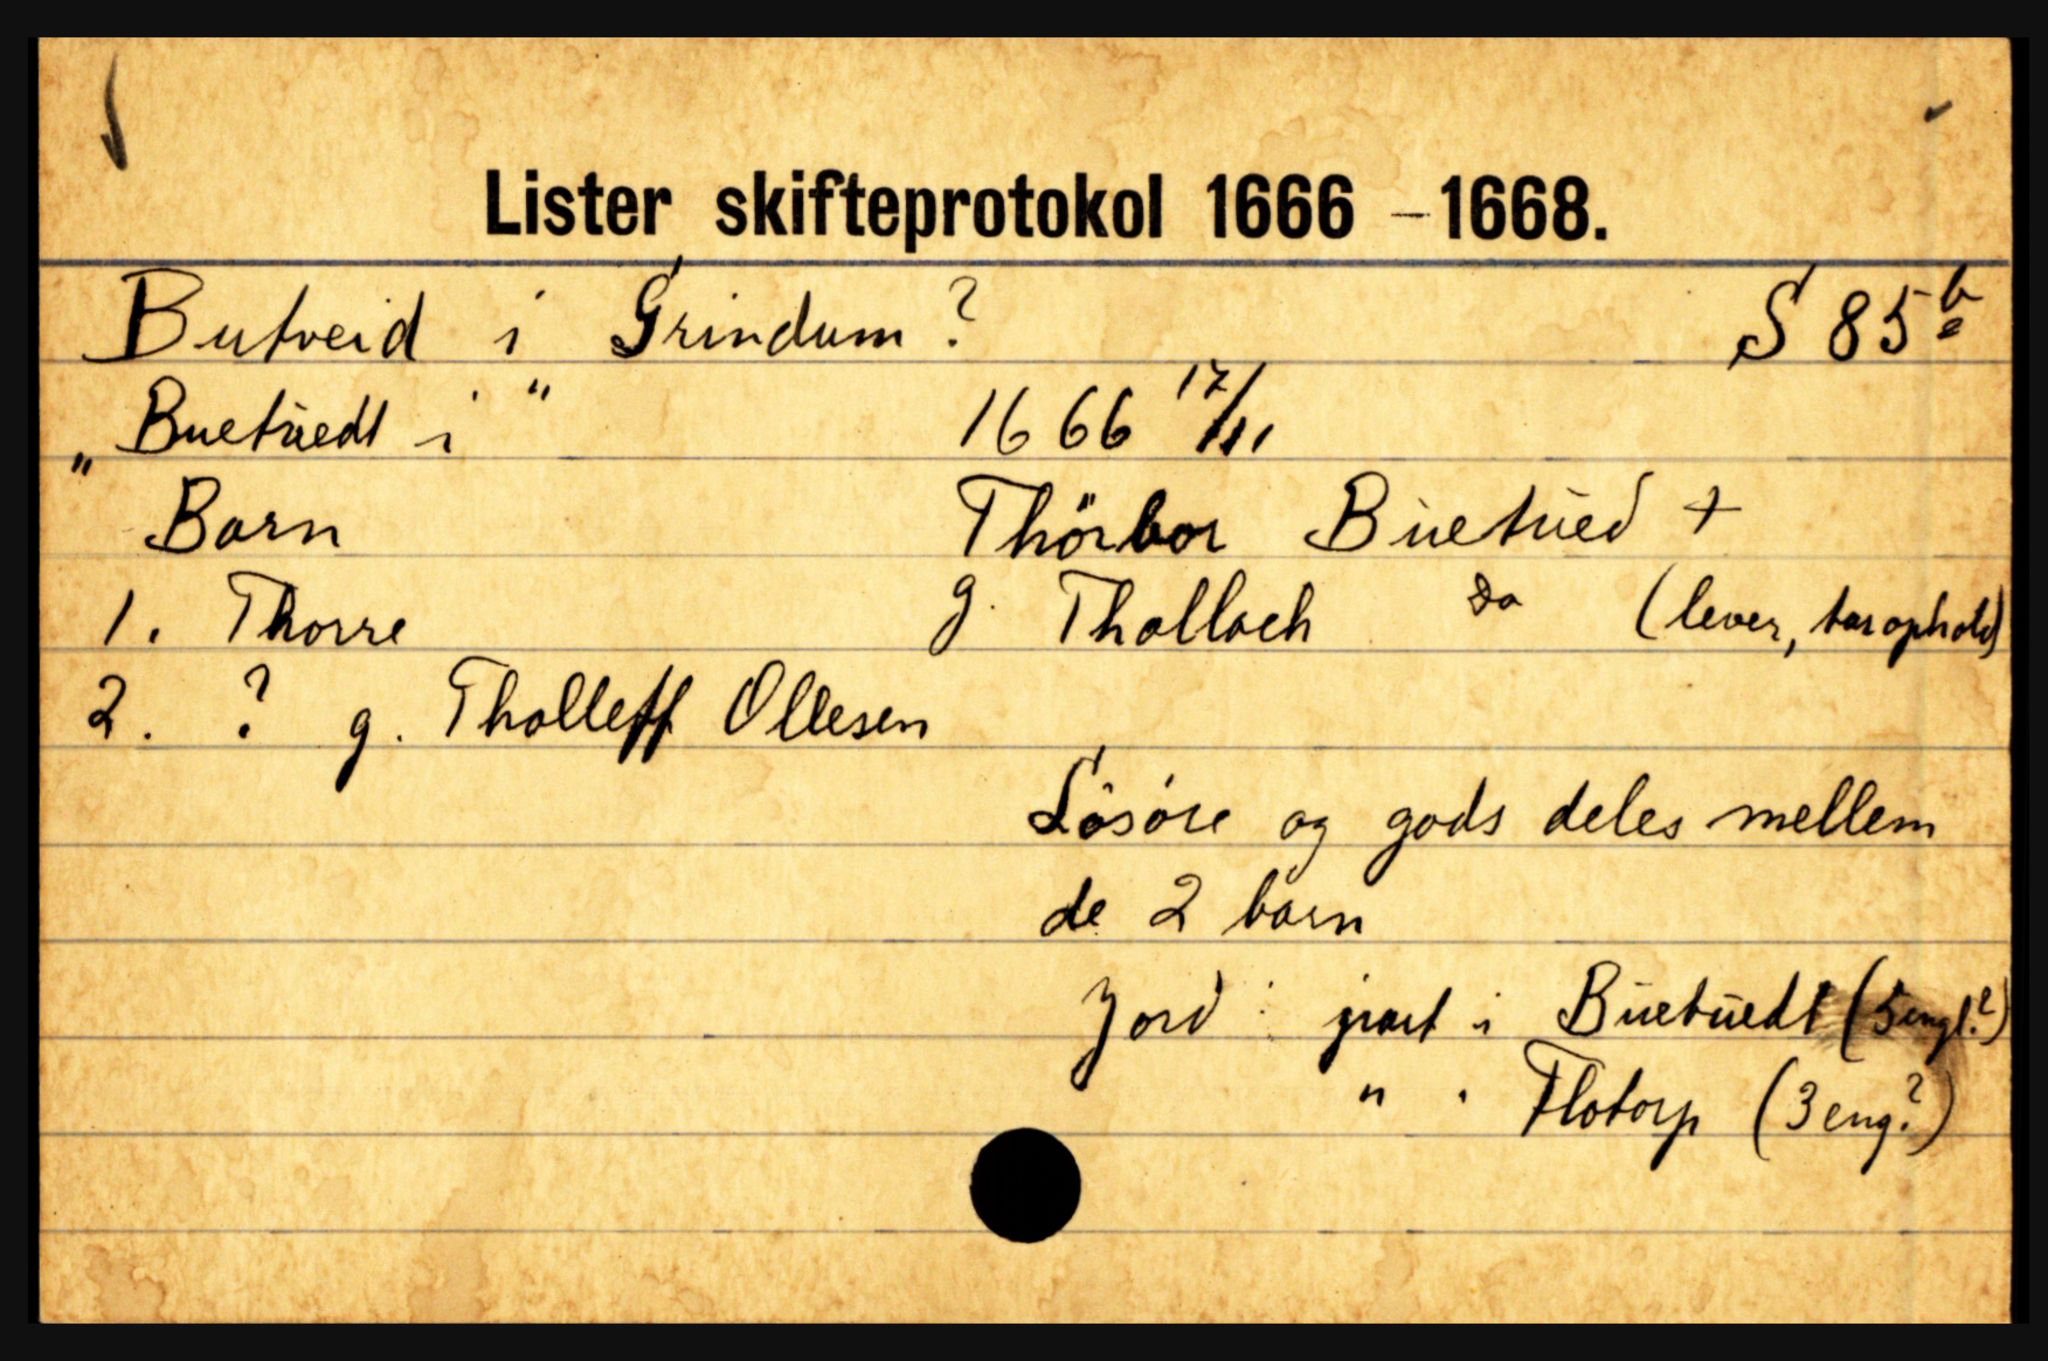 Lister skifteprotokol 1666 - 1668.
Butveid i Grindum ? S 85 b
„Buetůedt i " 1666 17/11
Barn Thörbor Bůetůed +
1. Thorre g. Thollach do (lever, tar ophold)
2. ? g. Tholleff Ollesen
Lösöre og gods deles mellem
de 2 barn
Jord : part i Bůetůedt (5 engl.?)
" " Flotorp (3 eng?)